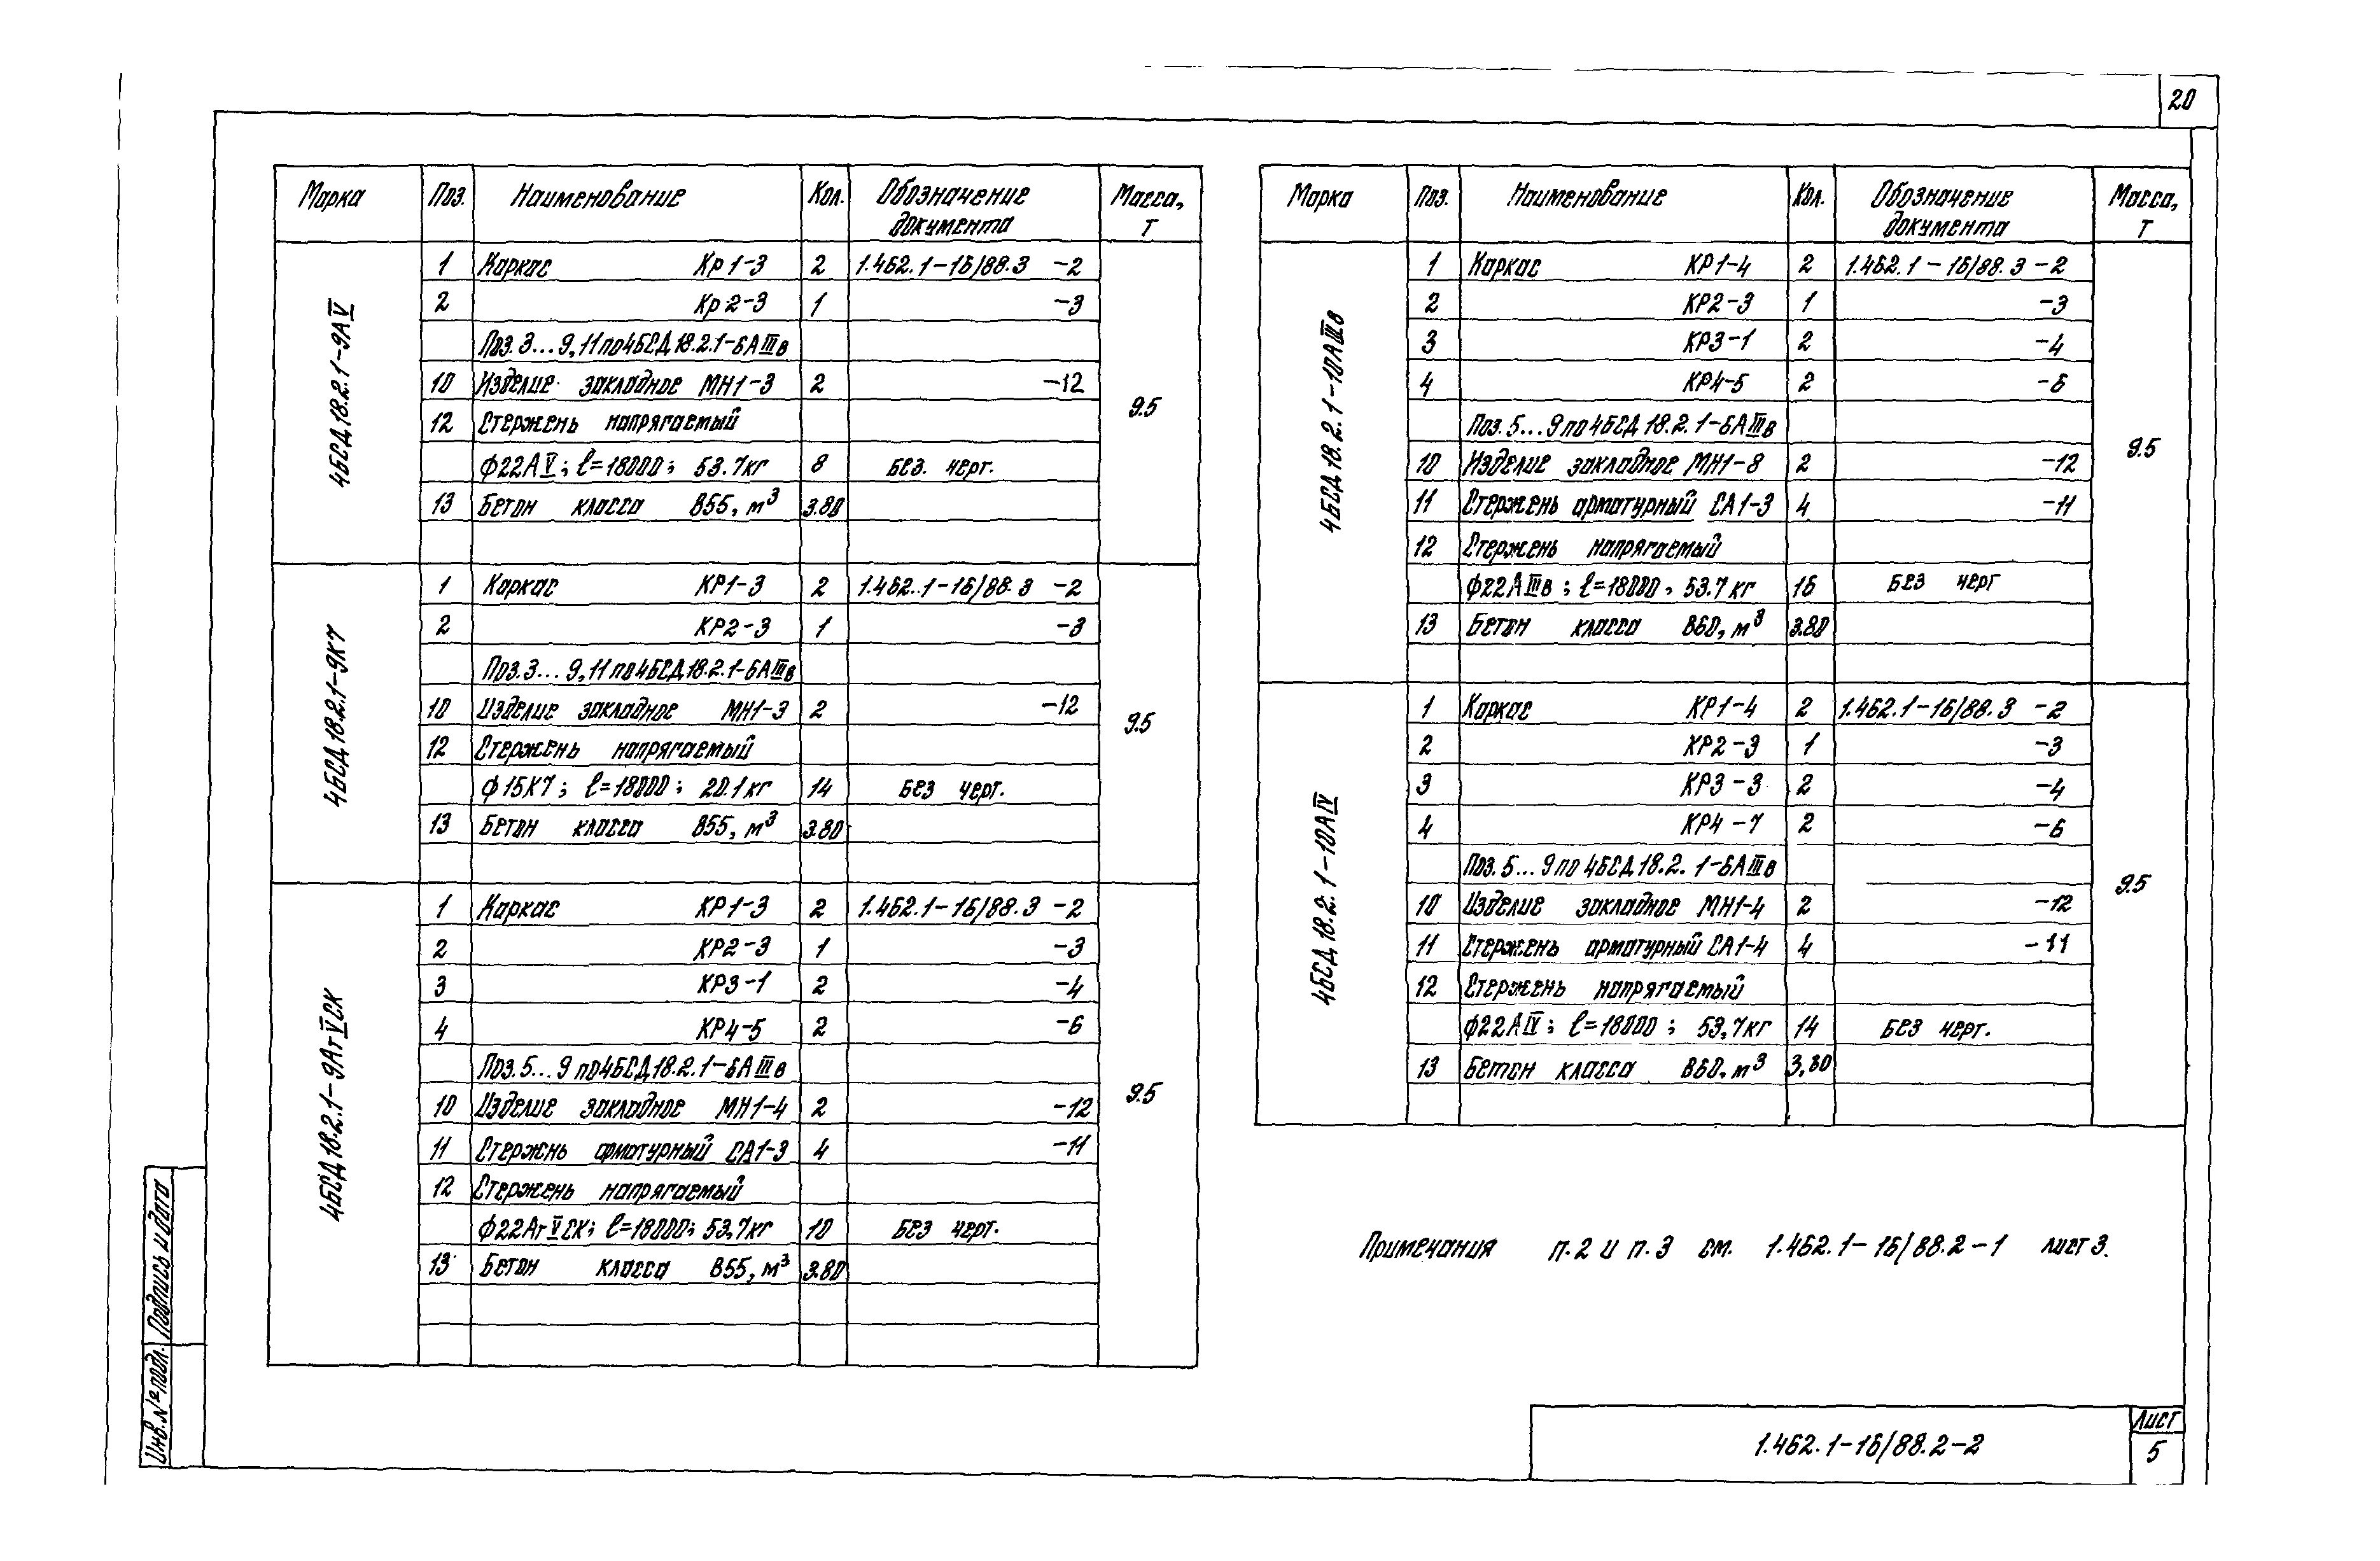 20
Марка Поз. Наименование Кол. Обозначение документа Масса, т
4БСД18.2.1-9АV
1 Каркас Кр1-3 2 1.462.1-16/88.3 -2
2 Кр2-3 1 -3
Поз. 3...9,11 по 4БСД18.2.1-6АIIIв
10 Изделие закладное МН1-3 2 -12
12 Стержень напрягаемый
ф22АV; ℓ=18000; 53.7кг 8 Без. черт.
13 Бетон класса В55, м³ 3.80
9.5
4БСД18.2.1-9К7
1 Каркас КР1-3 2 1.462.1-16/88.3 -2
2 КР2-3 1 -3
Поз. 3... 9,11 по 4БСД18.2.1-6АIIIв
10 Изделие закладное МН1-3 2 -12
12 Стержень напрягаемый
ф15К7; ℓ=18000; 20.1кг 14 Без черт.
13 Бетон класса В55, м³ 3.80
9.5
4БСД18.2.1-9АтVСК
1 Каркас КР1-3 2 1.462.1-16/88.3 -2
2 КР2-3 1 -3
3 КР3-1 2 -4
4 КР4-5 2 -6
Поз. 5...9 по 4БСД18.2.1-6АIIIв
10 Изделие закладное МН1-4 2 -12
11 Стержнь арматурный СА1-3 4 -11
12 Стержень напрягаемый
ф22АтVСК; ℓ=18000; 53,7кг 10 Без черт.
13 Бетон класса В55, м³ 3.80
9.5
Марка Поз. Наименование Кол. Обозначение документа Масса, т
4БСД18.2.1-10АIIIв
1 Каркас КР1-4 2 1.462.1-16/88.3 -2
2 КР2-3 1 -3
3 КР3-1 2 -4
4 КР4-5 2 -6
Поз. 5...9 по 4БСД18.2.1-6АIIIв
10 Изделие закладное МН1-8 2 -12
11 Стержень арматурный СА1-3 4 -11
12 Стержень напрягаемый
ф22АIIIв; ℓ=18000, 53.7кг 16 Без черт
13 Бетон класса В60, м³ 3.80
9.5
4БСД18.2.1-10АIV
1 Каркас КР1-4 2 1.462.1-16/88.3 -2
2 КР2-3 1 -3
3 КР3-3 2 -4
4 КР4-7 2 -6
Поз. 5...9 по 4БСД18.2.1-6АIIIв
10 Изделие закладное МН1-4 2 -12
11 Стержень арматурный СА1-4 4 -11
12 Стержень напрягаемый
ф22АIV; ℓ=18000; 53,7кг 14 Без черт.
13 Бетон класса В60, м³ 3,80
9.5
Примечания п.2 и п.3 см. 1.462.1-16/88.2-1 лист 3.
Инв.№ подл. Подпись и дата
1.462.1-16/88.2-2
Лист
5